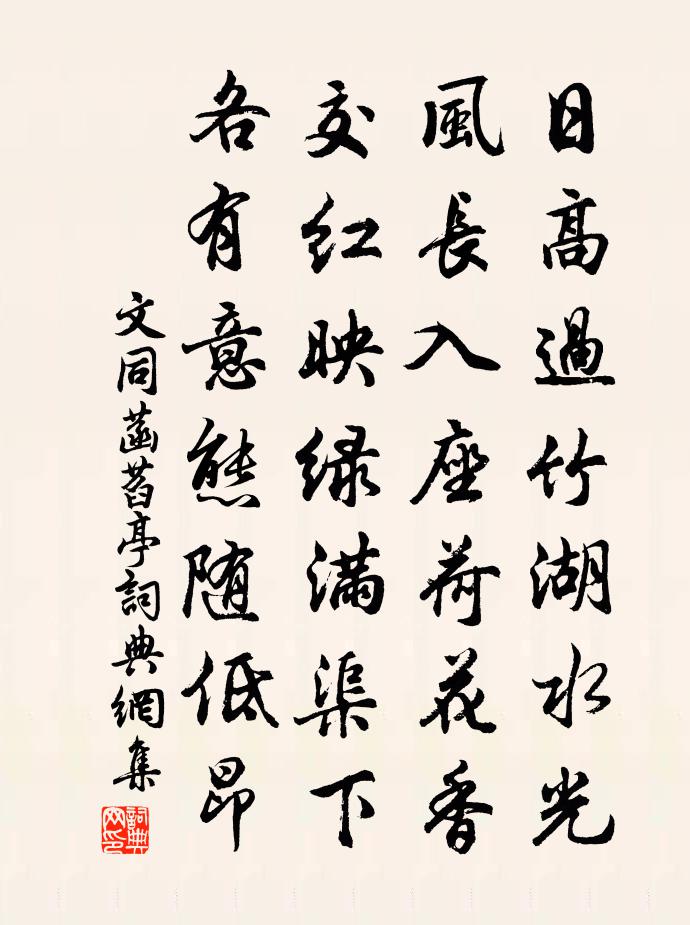 日高過竹湖水光
風長入座荷花香
交紅映绿滿渠下
各有意態随低昂
文同菡萏亭詞典網集
詞典網印